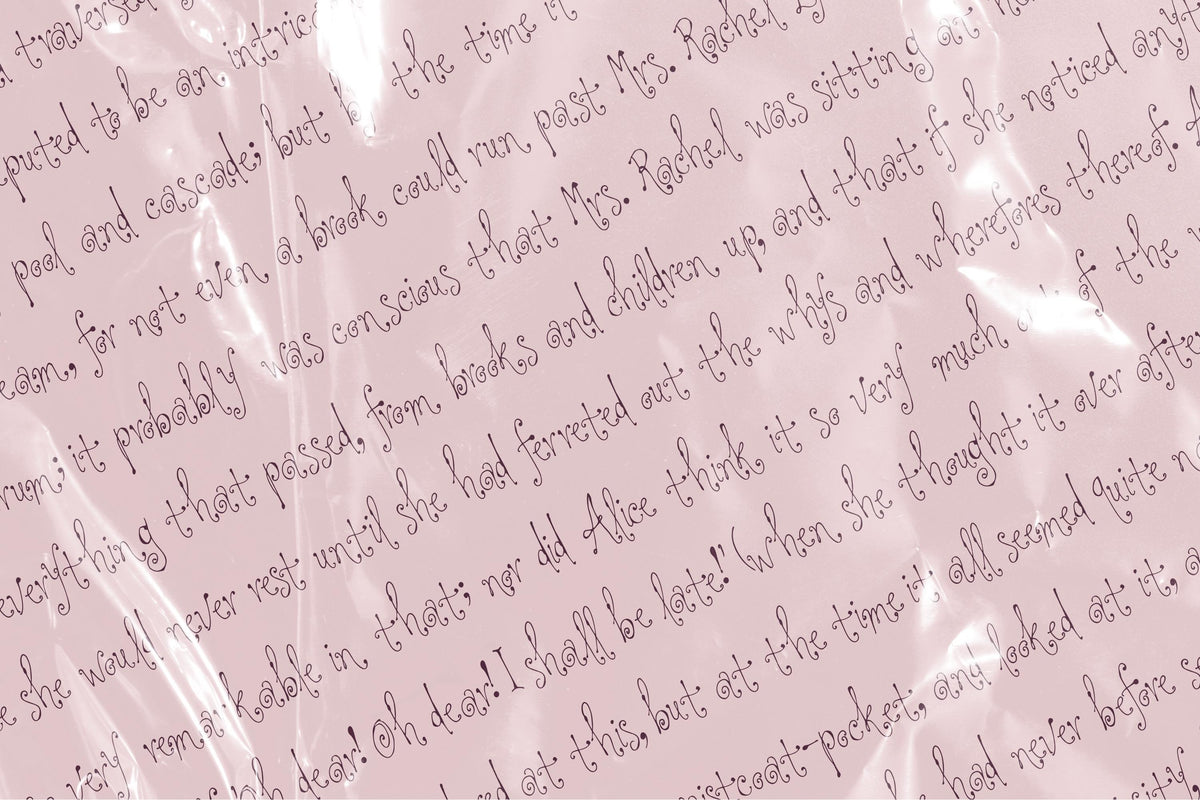 traversed
puted to be an intric
pool and cascade; but by the time it
eam, for not even a brook could run past Mrs. Rachel Ly
rum; it probably was conscious that Mrs. Rachel was sitting at
everything that passed, from brooks and children up, and that if she noticed anyt
she would never rest until she had ferreted out the whys and wherefores thereof.
very remarkable in that; nor did Alice think it so very much out of the
oh dear! Oh dear! I shall be late!' (when she thought it over afte
red at this, but at the time it all seemed quite
istcoat-pocket, and looked at it,
had never before